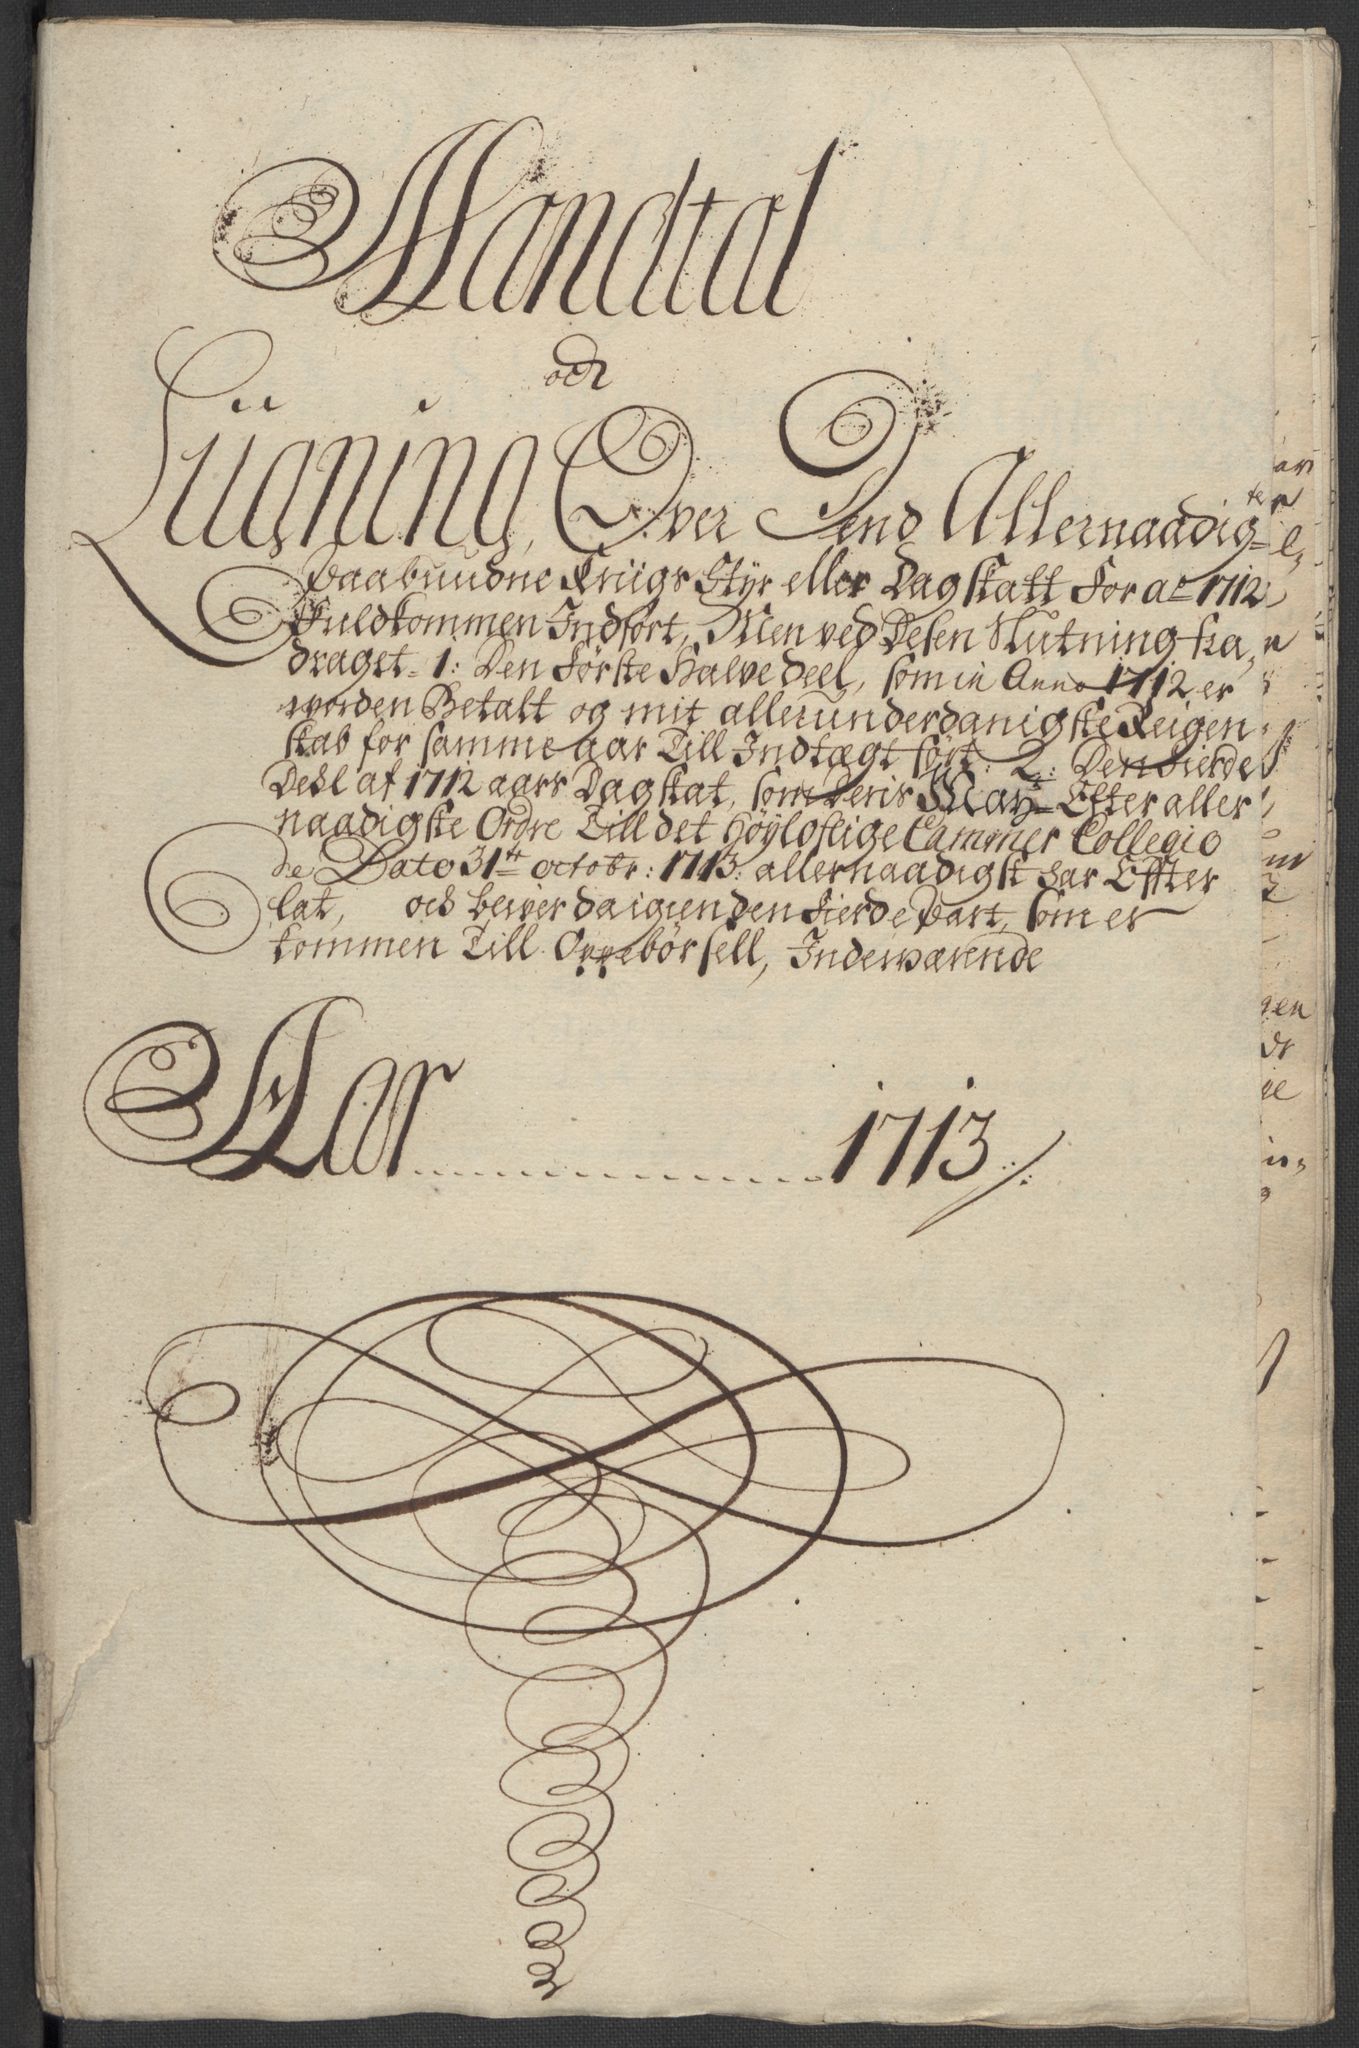 Mandtal
och
Liigning, Over Dend Allernaadigste
Paabuudne Kriigs Styr eller Dagskatt for ao 1712
Fuldkommen Indført, Men ved Desen Slutning fra
draget = 1: Den Første Halve deel, som in Anno 1712 er
worden Betalt og mit allerunderdanigste Reigen
skab for samme aar Till Indtægtført: 2: Den Fierde
Deel af 1712 aars Dagskat, som Deris Mayt= Efter aller
naadigste Ordre Till det Høyloflige Cammer Collegio
de Dato 31te octobr: 1713: allernaadigst har Effter
lat, och bliver da igien den Fierde Part, som er
kommen Till Oppebørsell, Indeværende
Aar 1713